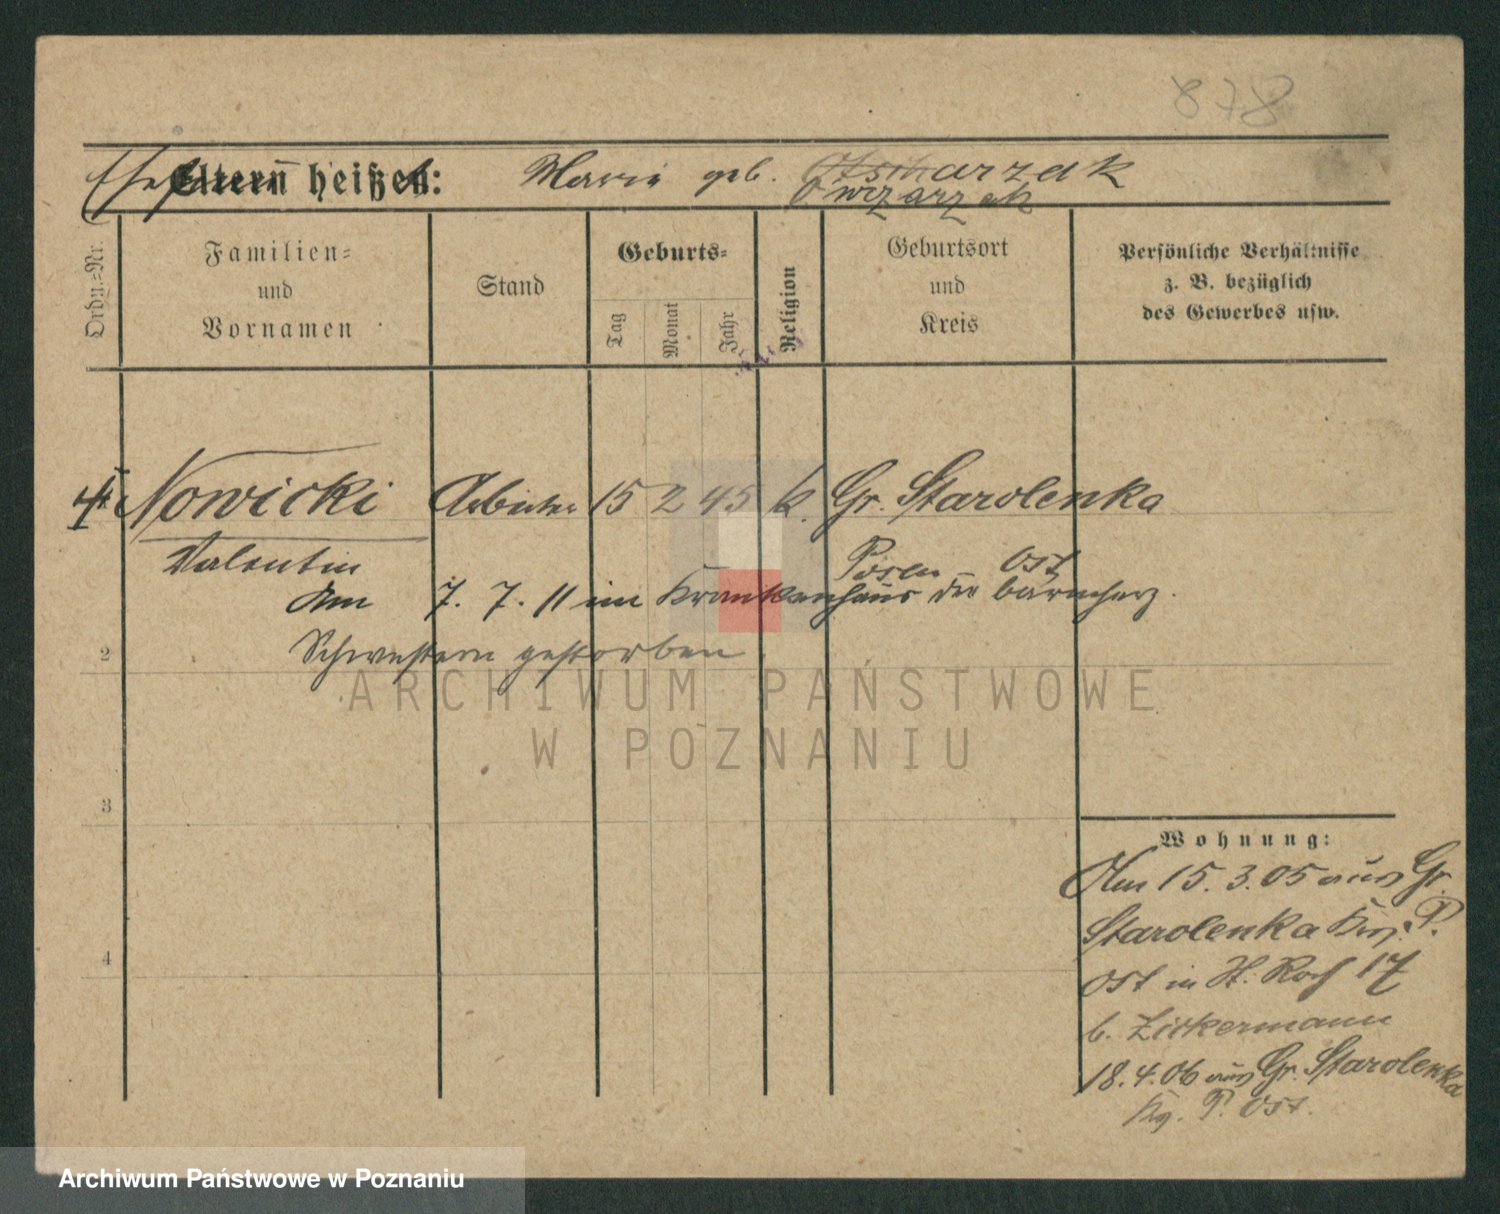 878
Ehefrau heißt: Marie geb. Otsmarzak
Owczarzak
Ordn.-Nr.
Familien-
und
Vornamen
Stand
Geburts-
Tag
Monat
Jahr
Religion
Geburtsort
und
Kreis
Persönliche Verhältnisse
z. B. bezüglich
des Gewerbes usw.
† Nowicki Arbeiter 15 2 45 k. Gr. Starolenka
Valentin Posen - Ost
Am 7. 7. 11 im Krankenhaus der barmherz.
Schwestern gestorben.
2
3
4
Wohnung:
Am 15. 3. 05 aus Gr.
Starolenka Krs. P.
Ost in St. Roch 17
b. Zickermann
18. 4. 06 aus Gr. Starolenka
Krs. P. Ost.
ARCHIWUM PAŃSTWOWE
W POZNANIU
Archiwum Państwowe w Poznaniu